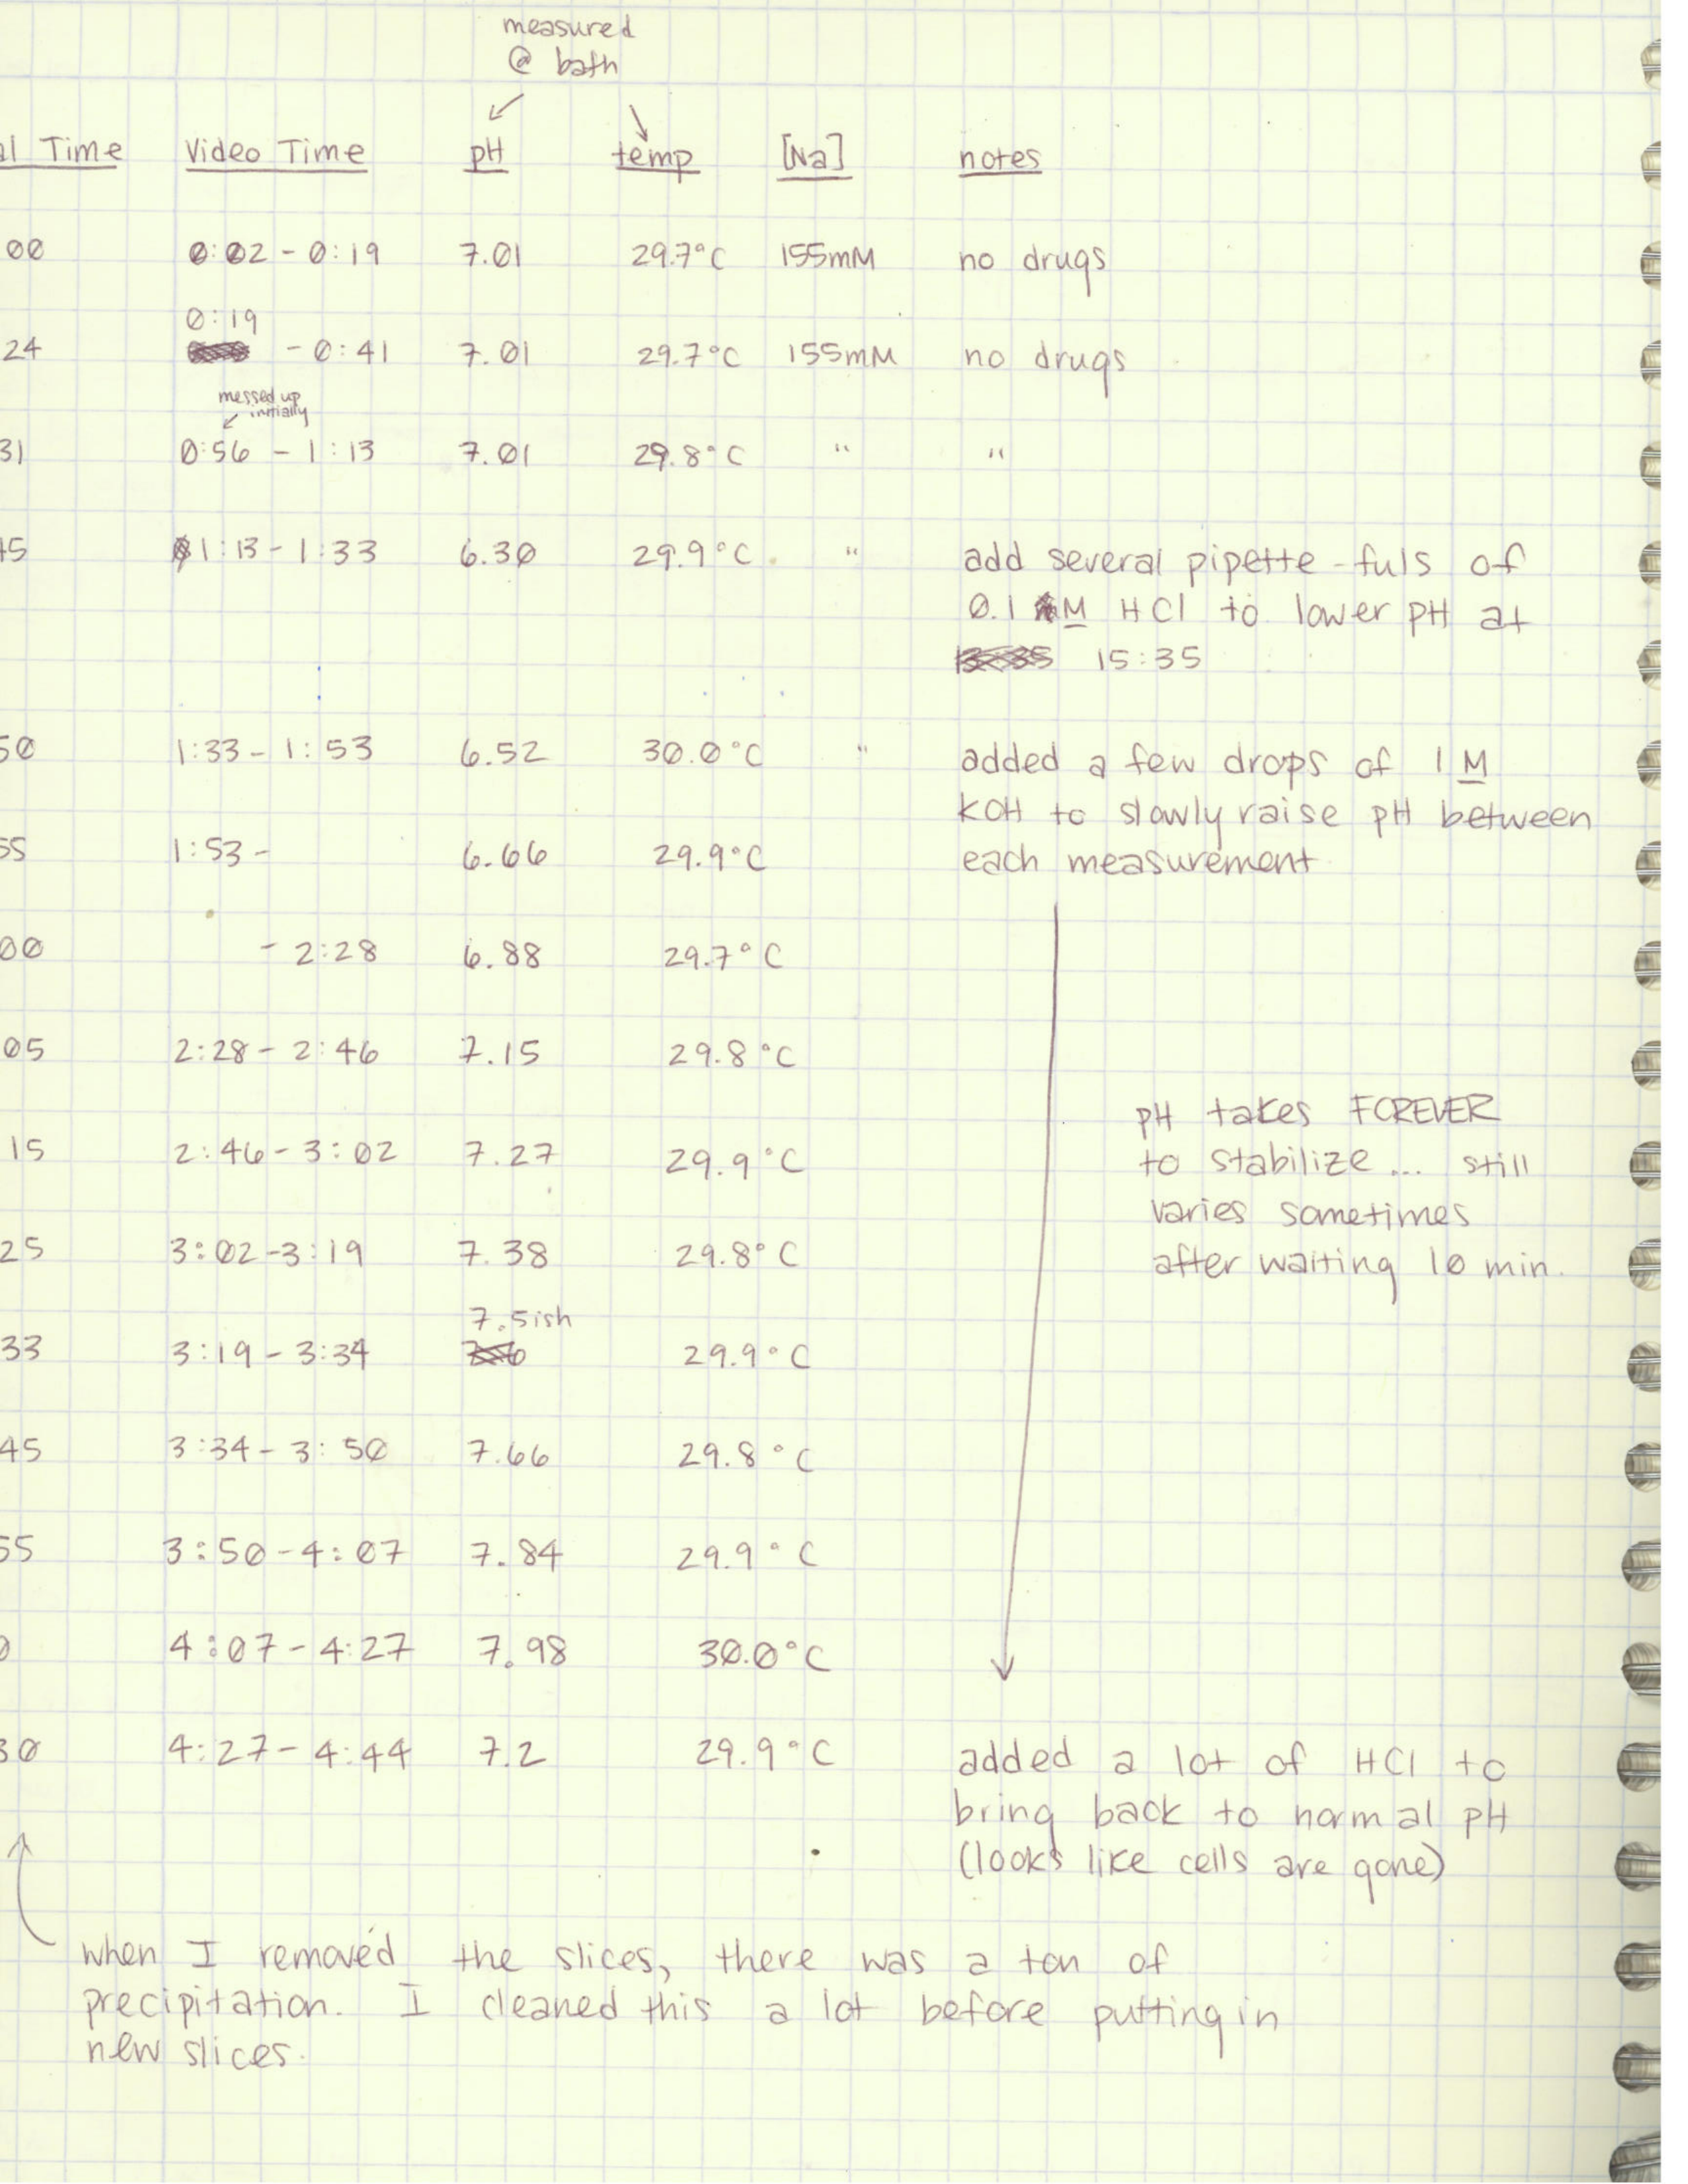 measured
@ bath
al Time Video Time pH temp [Na] notes
00 0:02 - 0:19 7.01 29.7°C 155mM no drugs
0:19
24 - 0:41 7.01 29.7°C 155mM no drugs
messed up
initially
31 0:56 - 1:13 7.01 29.8°C " "
45 1:13 - 1:33 6.30 29.9°C " add several pipette-fuls of
0.1 M HCl to lower pH at
15:35
50 1:33 - 1:53 6.52 30.0°C " added a few drops of 1 M
KOH to slowly raise pH between
55 1:53 - 6.66 29.9°C each measurement
00 - 2:28 6.88 29.7°C
05 2:28 - 2:46 7.15 29.8°C
pH takes FOREVER
15 2:46 - 3:02 7.27 29.9°C to stabilize... still
varies sometimes
25 3:02 - 3:19 7.38 29.8°C after waiting 10 min.
7.5ish
33 3:19 - 3:34 29.9°C
45 3:34 - 3:50 7.66 29.8°C
55 3:50 - 4:07 7.84 29.9°C
0 4:07 - 4:27 7.98 30.0°C
30 4:27 - 4:44 7.2 29.9°C added a lot of HCl to
bring back to normal pH
(looks like cells are gone)
when I removed the slices, there was a ton of
precipitation. I cleaned this a lot before putting in
new slices.